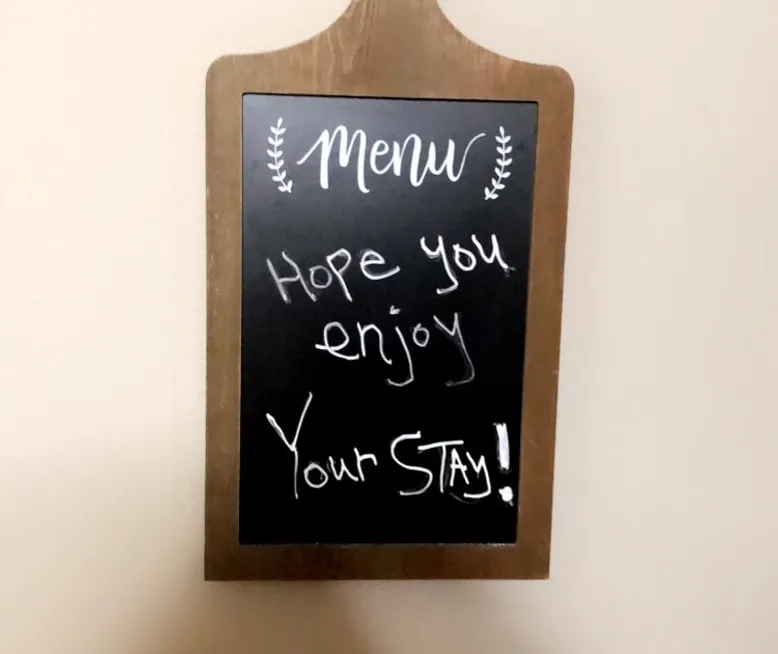 Menu
Hope you
enjoy
Your STAy!